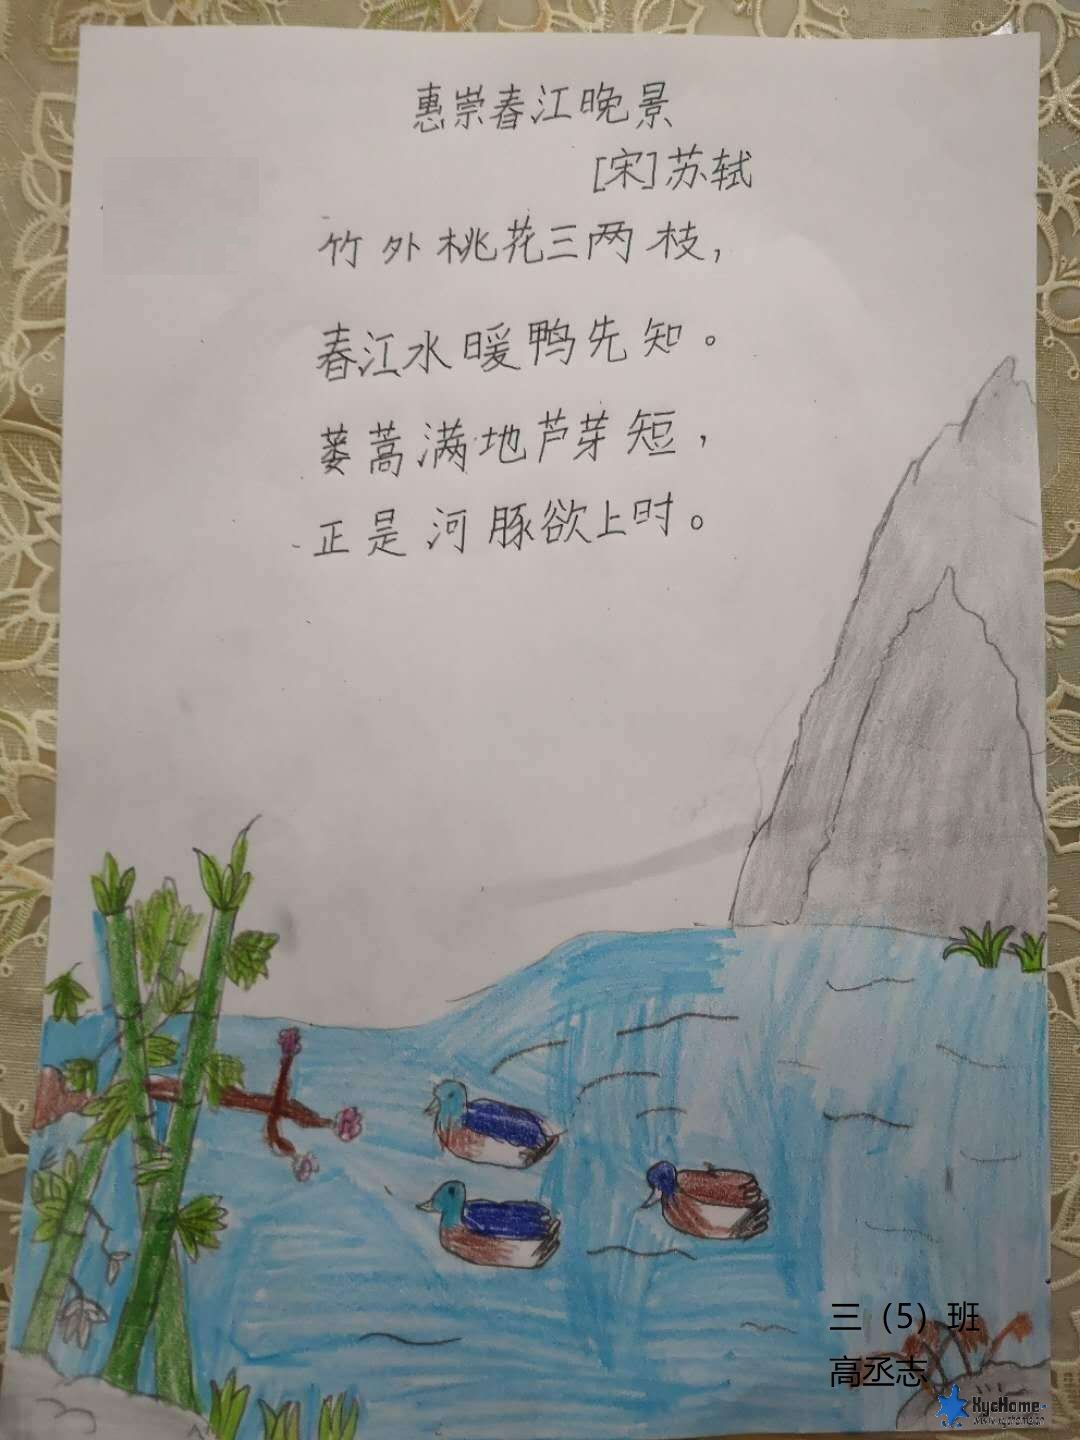 惠崇春江晚景
[宋]苏轼
竹外桃花三两枝，
春江水暖鸭先知。
蒌蒿满地芦芽短，
正是河豚欲上时。
三（5）班
高丞志
XycHome
www.xychome.cn